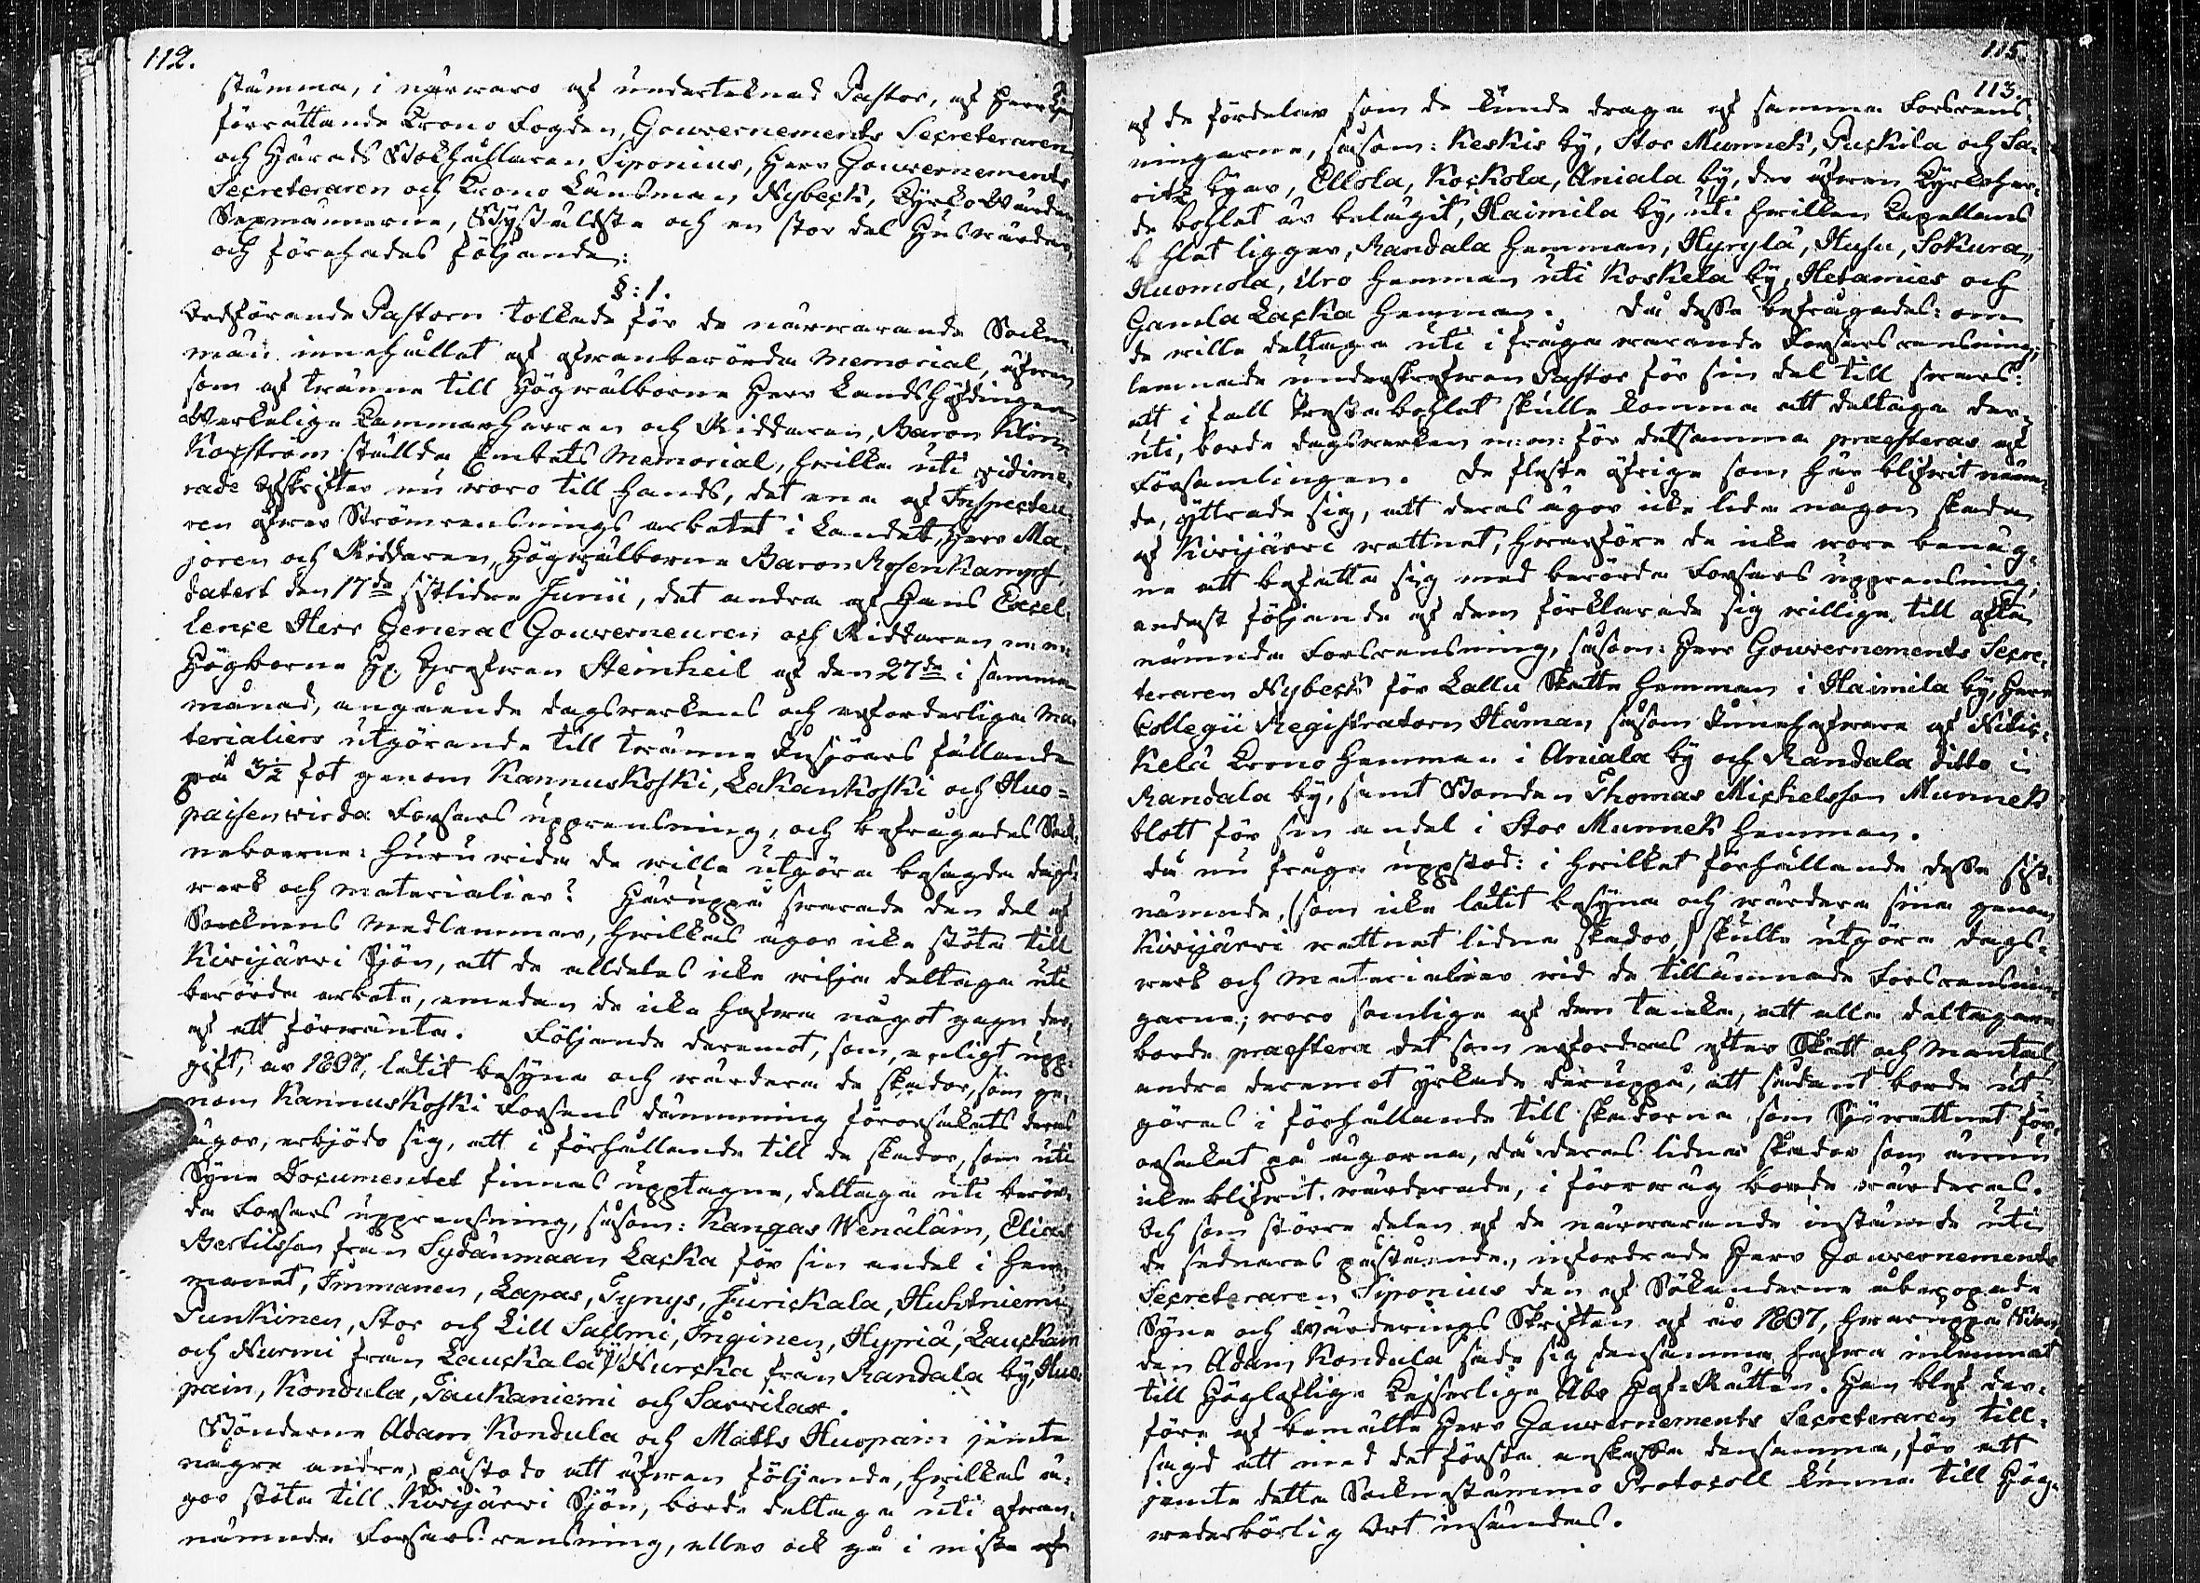 112.
stämma, i närwaro af undertecknad Pastor, af Herr
förrättande Krono Fogden, Gouvernements Secreteraren
och Härads Bokhållaren Siponius, Herr Gouvernements
Secreteraren och Krono Länsman Nybeck, Kyrko Wärden
Sexmännerne, Byäldste och en stor del Huswärdar,
och förehades följande:
§: 1.
Ordförande Pastorn tolkade för de närwarande Sockne-
män innehållet af ofwanberörda Memorial, äfwen
som af twänne till Högwälborne Herr Landshöfdingen
Werkelige Kammarherren och Riddaren, Baron Klinc
Kofström ställda Embets Memorial, hwilka uti vidime-
rade afskrifter nu woro till hands, det ena af Inspecteu-
ren öfwer Strömrensnings arbetet i Landet, Herr Ma-
joren och Riddaren, Högwälborne Baron Rosenkampf,
datert den 17de sistlidne Junii, det andra af Hans Excel-
lence Herr General Gouverneuren och Riddaren m: m:
Högborne H. Grefwen Steinheil af den 27de i samma
månad, angående dagswerkens och erforderliga Ma-
terialiers utgörande till twänne Insjöars fällande
på 3½ fot genom Kannuskoski, Lakankoski och Huo-
paisenwirda Forssars upprensning, och befrågades Sock-
neboerne: huruwida de wille utgöra besagde dags-
werk och materialier? Häruppå swarade den del af
Socknens medlemmar, hwilkas ägor icke stöta till
Kivijärvi Sjön, att de alldeles icke wilja deltaga uti
berörde arbete, emedan de icke hafwa något gagn der-
af att förwänta. Följande deremot, som, enligt upp-
gift, år 1807, låtit besyna och wärdera de skador, som ge-
nom Kannuskoski Forssens dämmning förorsakats deras
ägor, erbjödo sig, att i förhållande till de skador, som uti
Syne Documentet finnas upptagne, deltaga uti berör-
da Forssars upprensning, såsom: Kangas Wenäläin, Elias
Bertilsson från Sydänmaan Lacka för sin andel i hem-
manet, Immanen, Lapas, Tynys, Jurickala, Huhtniemi,
Punkinen, Stor och Lill Sallmi, Inginen, Hyriä, Lauckain
och Nurmi från Lauckala by, Nurcka från Randala by, Huo-
pain, Kondula, Taukaniemi och Sarvilax.
Bönderne Adam Kondula och Matts Huopain jämte
några andra, påstodo att äfwen följande, hwilkas ä-
gor stöta till Kivijärvi Sjön, borde deltaga uti ofwan-
nämnde Forssars rensning, eller ock gå i miste af
115.
113.
af de fördelar som de kunde draga af samma Forsrens-
ningarne, såsom: Keskis by, Stor Munnek, Puckila och Sa-
ritz byar, Ellola, Kockola, Aniala by, der äfwen Kyrkoher-
de bohlet är belägit, Haimila by, uti hwilken Capellans
bohlet ligger, Randala hemman, Hyrylä, Husu, Sokura,
Huomola, Uro hemman uti Koskela by, Hetamies och
Gamla Lacka hemman. Då desse befrågades: om
de wille deltaga uti i fråga warande Forssars rensning;
lemnade underskrefwen Pastor för sin del till swars:
att i fall Prestebohlet skulle komma att deltaga der-
uti, borde dagswerken m: m: för detsamma præsteras af
Församlingen. De fleste öfrige som här blifwit nämn-
de, yttrade sig, att deras ägor icke lida någon skada
af Kivijärvi wattnet, hwarföre de icke wore benäg-
ne att befatta sig med berörde Forssars upprensning;
endast följande af dem förklarade sig willige till ofta
nämnde Forsrensning, såsom: Herr Gouvernements Secre-
teraren Nybeck för Lallu Skatte hemman i Haimila by, Herr
Collegii Registratorn Håman, såsom Innehafware af Nilis-
kelä Krono hemman i Aniala by och Randala ditto i
Randala by, samt Bonden Thomas Mickelsson Munnek
blott för sin andel i Stor Munnek hemman.
Då nu fråga uppstod: i hwilket förhållande desse sist-
nämnde, (som icke låtit besyna och wärdera sina genom
Kivijärvi wattnet lidna skador,) skulle utgöra dags-
werk och Materialier wid de tillämnade Forsrensnin-
garne; woro somlige af den tanke, att alla deltagare
borde præstera det som erfordras efter Skatt och Mantal;
andre deremot yrkade deruppå, att sådant borde ut-
göras i förhållande till skadorne som Sjöwattnet för-
orsakat på ägorna, då deras lidna skador som ännu
icke blifwit wärderade, i förewäg borde wärderas.
Och som större delen af de närwarande instämde uti
de sednares påstående, infordrade Herr Gouvernements
Secreteraren Siponius den af Sökanderne åberopade
Syne och Wärderings Skriften af år 1807, hwaruppå Bon-
den Adam Kondula sade sig densamma hafwa inlemnat
till Högloflige Kejserliga Åbo Hof-Rätten. Han blef der-
före af bemälte Herr Gouvernements Secreteraren till-
sagd att med det första anskaffa densamma, för att
jemte detta Sockenstämmo Protocoll kunna till Hög-
wederbörlig Ort insändas.